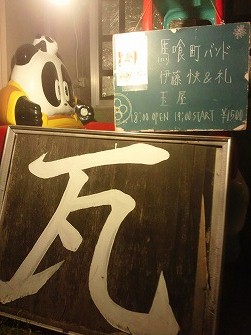 馬喰町バンド
伊藤 快&礼
玉屋
18:00 OPEN 19:00 START ¥1500
瓦